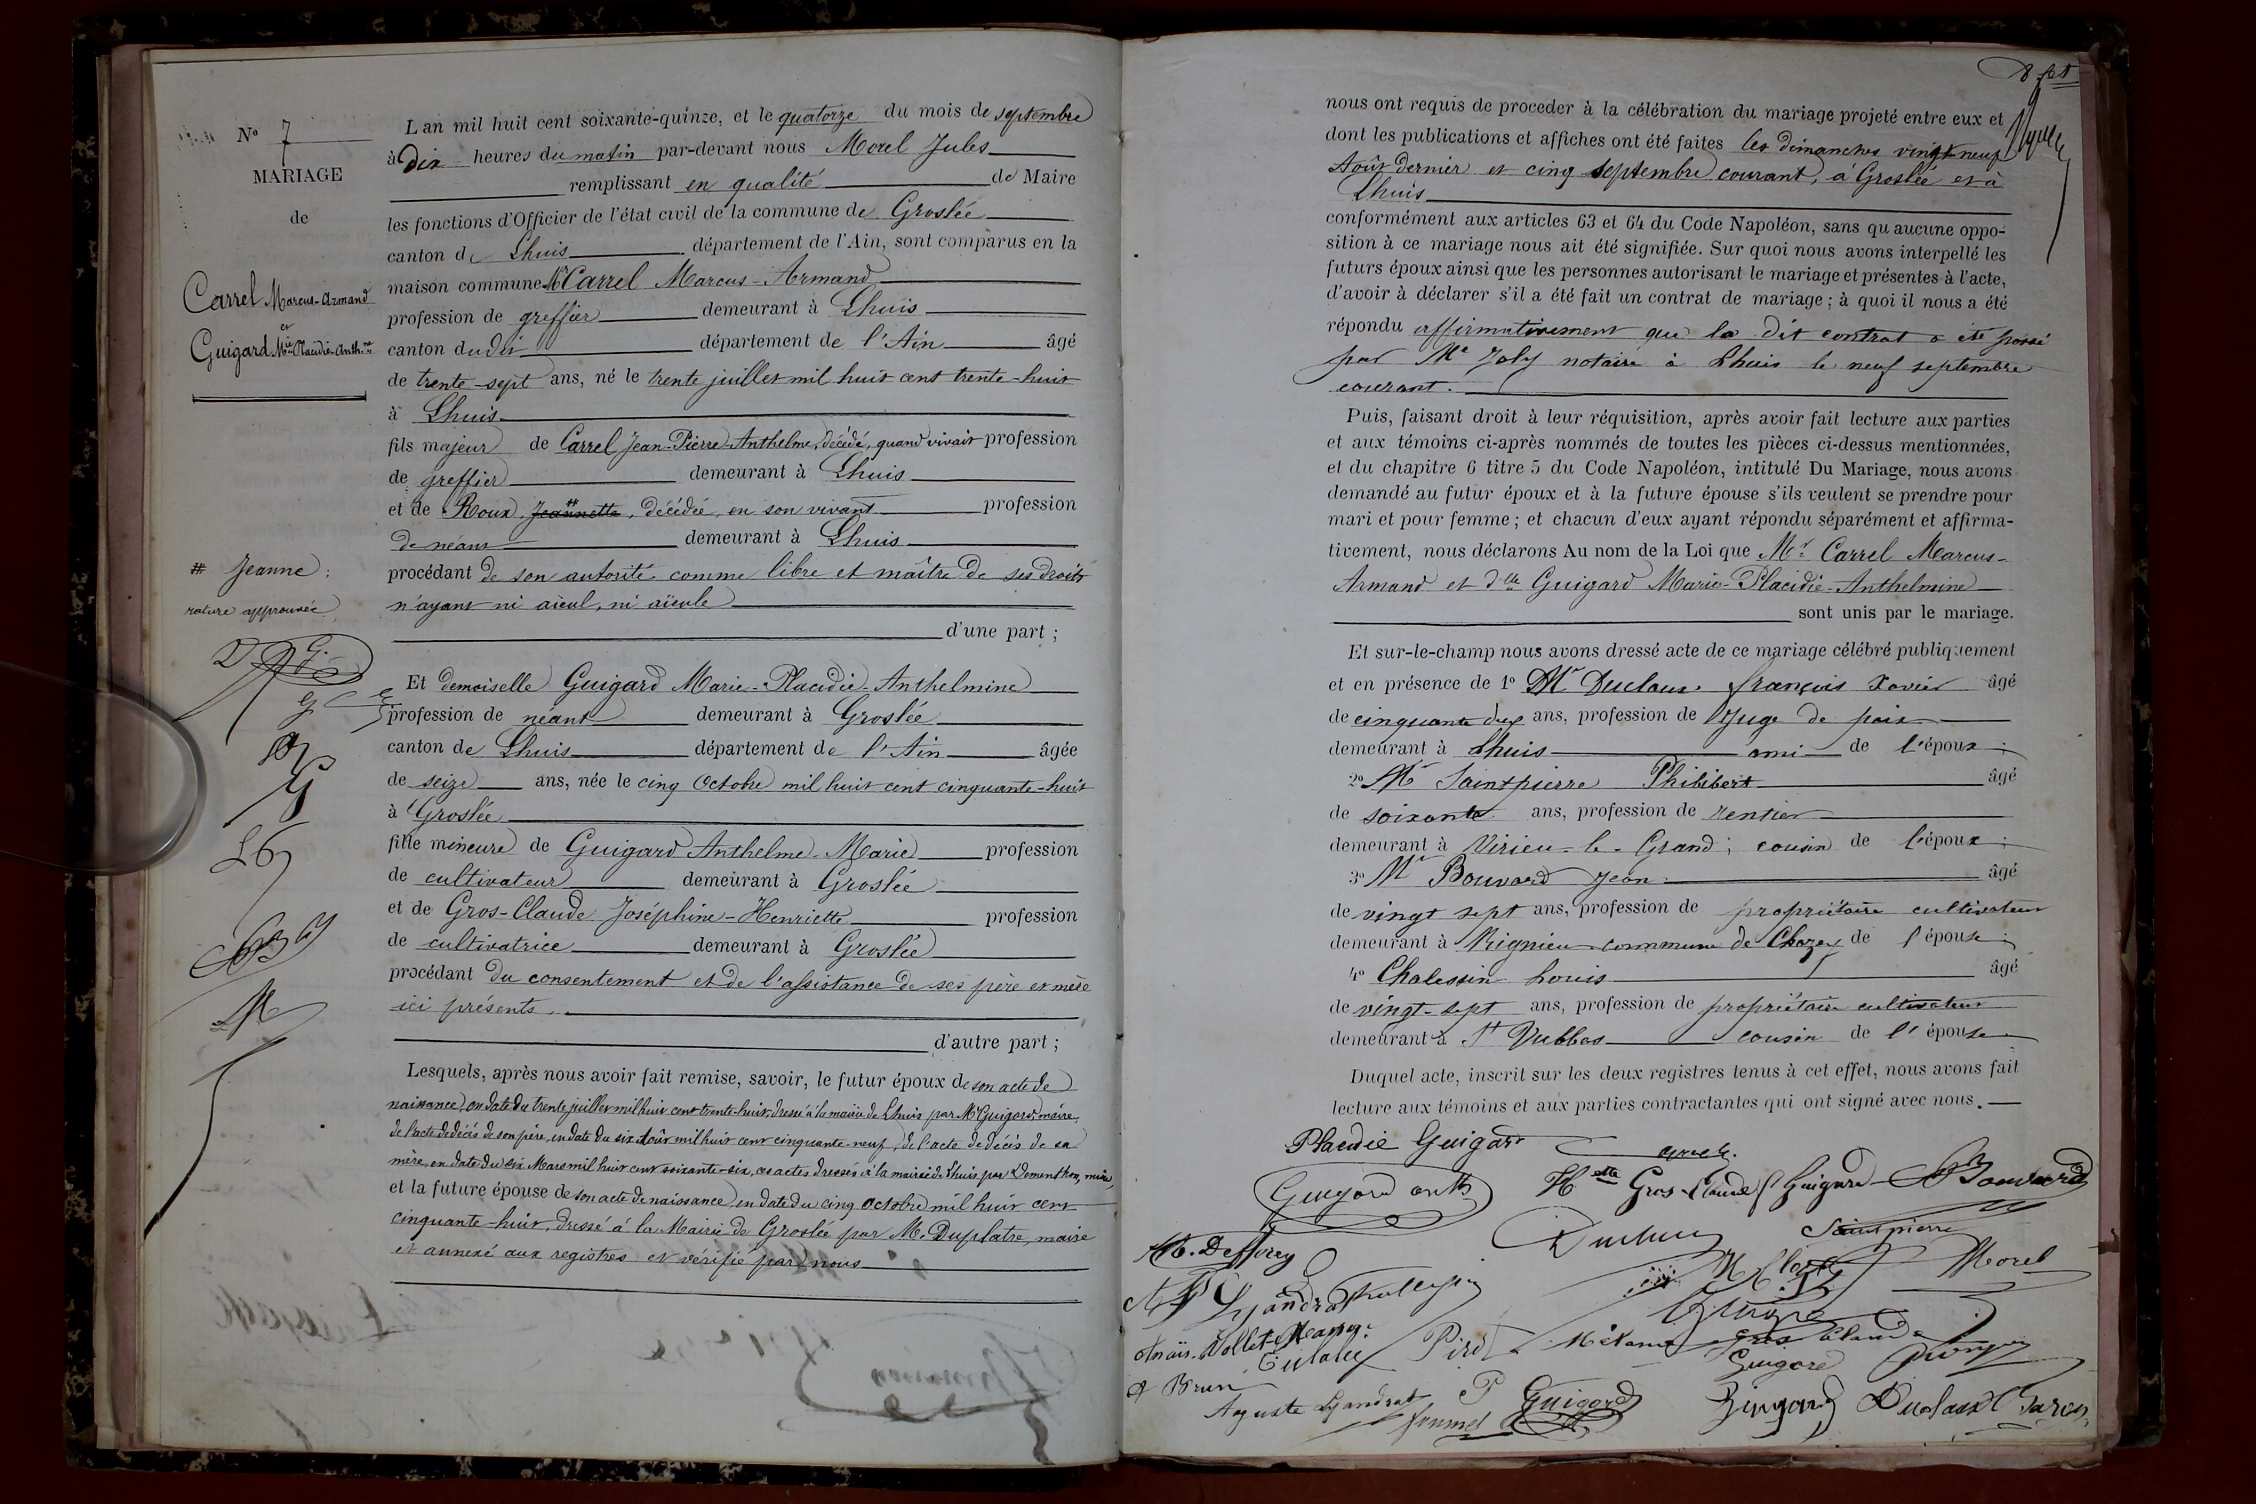 N° 7
MARIAGE
de
Carrel Marcus-Armand
et
Guigard Mie Placidie-Anth.ne
# Jeanne :
rature approuvée
L an mil huit cent soixante-quinze, et le quatorze du mois de septembre
à dix heures du matin par-devant nous Morel Jules
remplissant en qualité de Maire
les fonctions d'Officier de l'état civil de la commune de Groslée
canton de Lhuis département de l'Ain, sont comparus en la
maison commune Mr Carrel Marcus-Armand
profession de greffier demeurant à Lhuis
canton dudit département de l'Ain âgé
de trente-sept ans, né le trente juillet mil huit cent trente-huit
à Lhuis
fils majeur de Carrel Jean-Pierre-Anthelme, décédé, quand vivait profession
de greffier demeurant à Lhuis
et de Roux, Jeannette #, décédée, en son vivant profession
de néant demeurant à Lhuis
procédant de son autorité comme libre et maître de ses droits
n'ayant ni aïeul, ni aïeule
d'une part ;
Et demoiselle Guigard Marie-Placidie-Anthelmine
profession de néant demeurant à Groslée
canton de Lhuis département de l'Ain âgée
de seize ans, née le cinq Octobre mil huit cent cinquante-huit
à Groslée
fille mineure de Guigard Anthelme-Marie profession
de cultivateur demeurant à Groslée
et de Gros-Claude Joséphine-Henriette profession
de cultivatrice demeurant à Groslée
procédant du consentement et de l'assistance de ses père et mère
ici présents.
d'autre part ;
Lesquels, après nous avoir fait remise, savoir, le futur époux de son acte de
naissance, en date du trente juillet mil huit cent trente-huit, dressé à la mairie de Lhuis par Mr Guigard, maire,
de l'acte de décès de son père, en date du six Août mil huit cent cinquante-neuf, de l'acte de décès de sa
mère, en date du six Mars mil huit cent soixante-six, ces actes dressés à la mairie de Lhuis par Dementhon, maire,
et la future épouse de son acte de naissance, en date du cinq Octobre mil huit cent
cinquante-huit, dressé à la Mairie de Groslée par M. Duplatre, maire
et annexé aux registres et vérifié par nous
nous ont requis de proceder à la célébration du mariage projeté entre eux et
dont les publications et affiches ont été faites les dimanches vingt-neuf
Août dernier et cinq septembre courant, à Groslée et à
Lhuis
conformément aux articles 63 et 64 du Code Napoléon, sans qu aucune oppo-
sition à ce mariage nous ait été signifiée. Sur quoi nous avons interpellé les
futurs époux ainsi que les personnes autorisant le mariage et présentes à l'acte,
d'avoir à déclarer s'il a été fait un contrat de mariage ; à quoi il nous a été
répondu affirmativement que le dit contrat a été passé
par Me Joly notaire à Lhuis le neuf septembre
courant.
Puis, faisant droit à leur réquisition, après avoir fait lecture aux parties
et aux témoins ci-après nommés de toutes les pièces ci-dessus mentionnées,
et du chapitre 6 titre 5 du Code Napoléon, intitulé Du Mariage, nous avons
demandé au futur époux et à la future épouse s'ils veulent se prendre pour
mari et pour femme ; et chacun d'eux ayant répondu séparément et affirma-
tivement, nous déclarons Au nom de la Loi que Mr. Carrel Marcus-
Armand et dlle Guigard Marie-Placidie-Anthelmine
sont unis par le mariage.
Et sur-le-champ nous avons dressé acte de ce mariage célébré publiquement
et en présence de 1° Mr Duclaux françois Xavier âgé
de cinquante deux ans, profession de Juge de paix
demeurant à Lhuis ami de l'époux ;
2° Mr Saintpierre Philibert âgé
de soixante ans, profession de rentier
demeurant à Virieu-le-Grand ; cousin de l'époux ;
3° Mr Bouvard Jean âgé
de vingt sept ans, profession de propriétaire cultivateur
demeurant à Rignieu commune de Chazey de l'épouse ;
4° Chalessin Louis âgé
de vingt-sept ans, profession de propriétaire cultivateur
demeurant à St Vulbas cousin de l'épouse
Duquel acte, inscrit sur les deux registres tenus à cet effet, nous avons fait
lecture aux témoins et aux parties contractantes qui ont signé avec nous.
Placidie Guigard
Guigard anth
Hte Gros-Claude f Guigard Bouvard
Saintpierre
Morel
Eulalie
Mélanie Gros Claude
Guigard
A Brun
Auguste
P Guigard